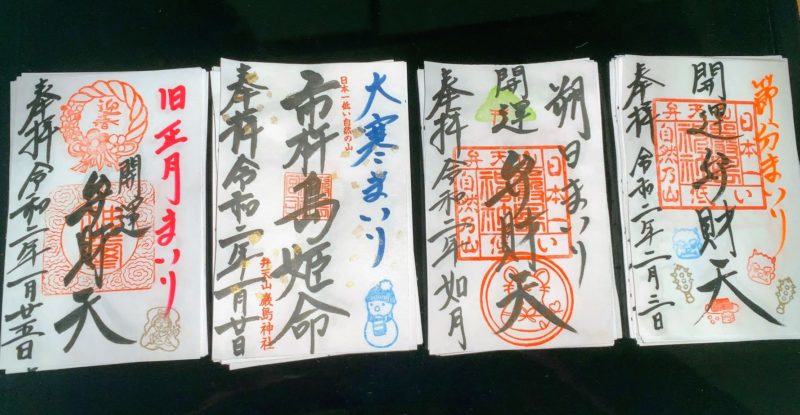 旧正月まいり
迎春
開運
弁財天
奉拝 令和二年一月廿五日
大寒まいり
日本一低い自然の山
市杵島姫命
弁天山 厳島神社
奉拝 令和二年一月廿日
朔日まいり
開運
弁財天
日本一い
自然乃山
奉拝 令和二年 如月
節分まいり
開運弁財天
日本一い
自然乃山
奉拝 令和二年二月三日